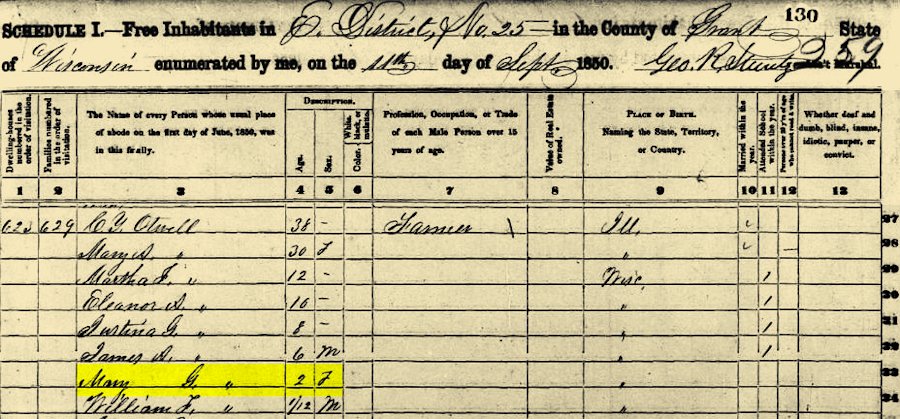 130
SCHEDULE I.—Free Inhabitants in E. District, No. 25 in the County of Grant State
of Wisconsin enumerated by me, on the 11th day of Sept 1850. Geo. R. Stuntz 259
Dwelling-houses numbered in the order of visitation.
Families numbered in the order of visitation.
The Name of every Person whose usual place of abode on the first day of June, 1850, was in this family.
DESCRIPTION.
Age.
Sex.
Color. White, black, or mulatto.
Profession, Occupation, or Trade of each Male Person over 15 years of age.
Value of Real Estate owned.
PLACE OF BIRTH. Naming the State, Territory, or Country.
Married within the year.
Attended School within the year.
Persons over 20 y'rs of age who cannot read & write.
Whether deaf and dumb, blind, insane, idiotic, pauper, or convict.
1 2 3 4 5 6 7 8 9 10 11 12 13
623 629 C. Y. Otwell 38 – Farmer \ Ill. 27
Mary A. " 30 F " – 28
Martha F. " 12 – Wisc. 1 29
Eleanor A. " 10 – " 1 30
Justina G. " 8 – " 1 31
James A. " 6 M " 1 32
Mary G. " 2 F " 33
William F. " 1/12 M " 34